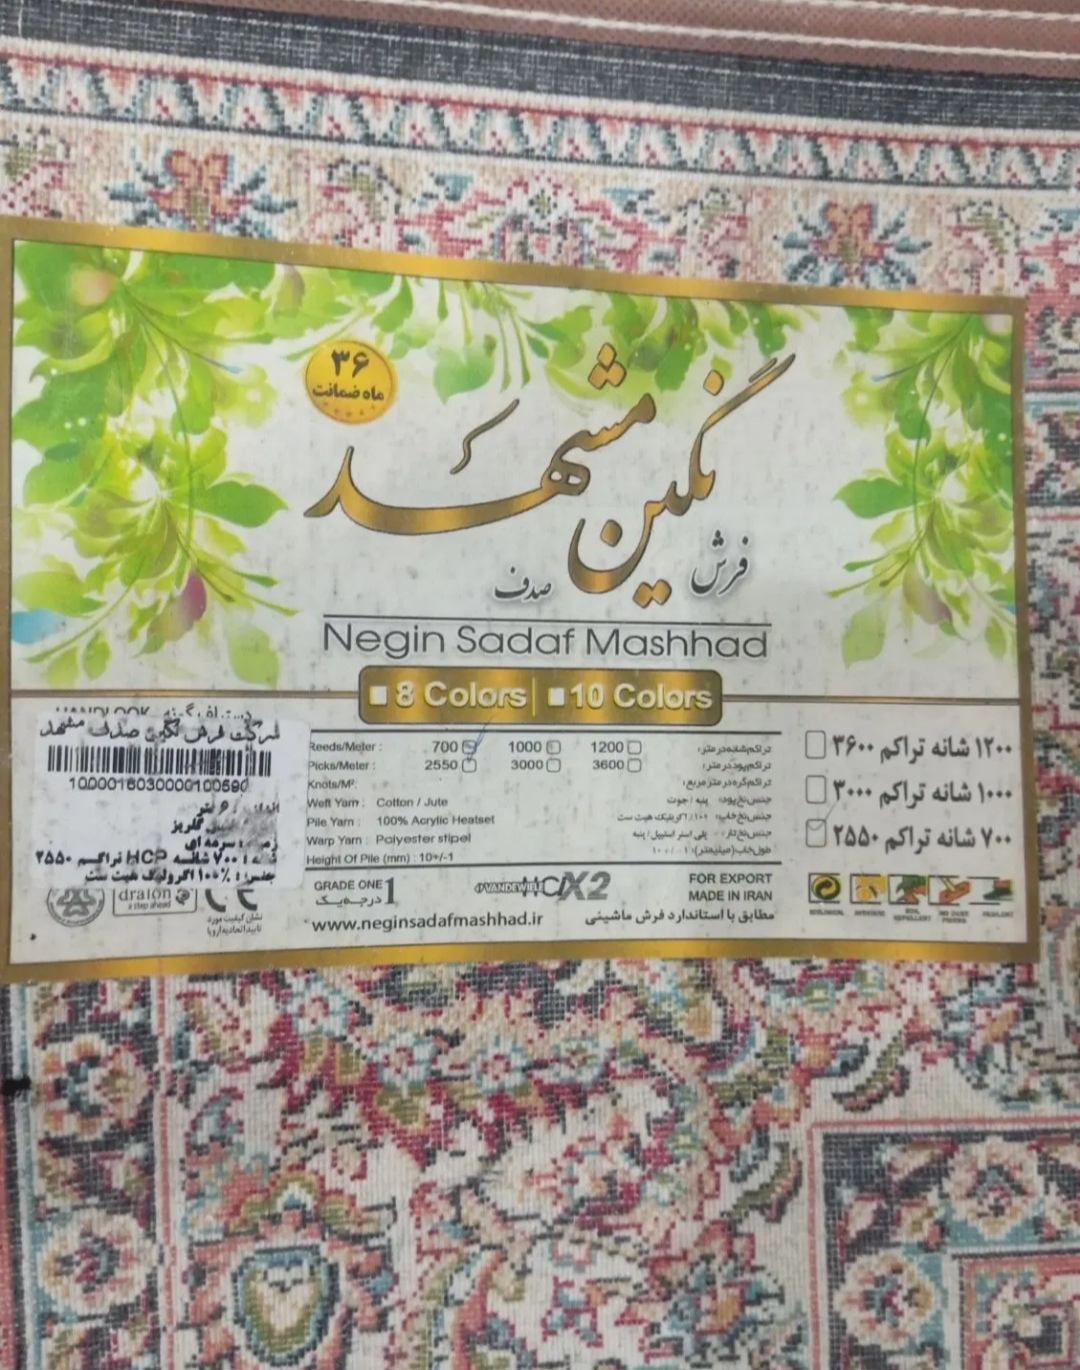 ۳۶
ماه ضمانت
نگین مشهد
فرش
صدف
Negin Sadaf Mashhad
8 Colors | 10 Colors
شرکت فرش نگین صدف مشهد
10000160300001005
۶ متر
گلریز
زمینه: سرمه ای
۷۰۰ شانه HCP تراکم ۲۵۵۰
جنس: ۱۰۰٪ اکرولیک هیت ست
dralon
a step ahead
نشان کیفیت مورد
تایید اتحادیه اروپا
Reeds/Meter : 700 1000 1200 تراکم شانه در متر:
Picks/Meter : 2550 3000 3600 تراکم پود در متر:
Knots/M²: تراکم گره در متر مربع:
Weft Yarn : Cotton / Jute پنبه / جوت جنس نخ پود:
Pile Yarn : 100% Acrylic Heatset ۱۰۰٪ اکریلیک هیت ست جنس نخ خاب:
Warp Yarn : Polyester stipel پلی استر استیپل / پنبه جنس نخ تار:
Height Of Pile (mm) : 10+/-1 طول خاب (میلیمتر):
۱۲۰۰ شانه تراکم ۳۶۰۰
۱۰۰۰ شانه تراکم ۳۰۰۰
۷۰۰ شانه تراکم ۲۵۵۰
GRADE ONE 1
درجه یک
VANDEWIELE
X2
FOR EXPORT
MADE IN IRAN
www.neginsadafmashhad.ir
مطابق با استاندارد فرش ماشینی